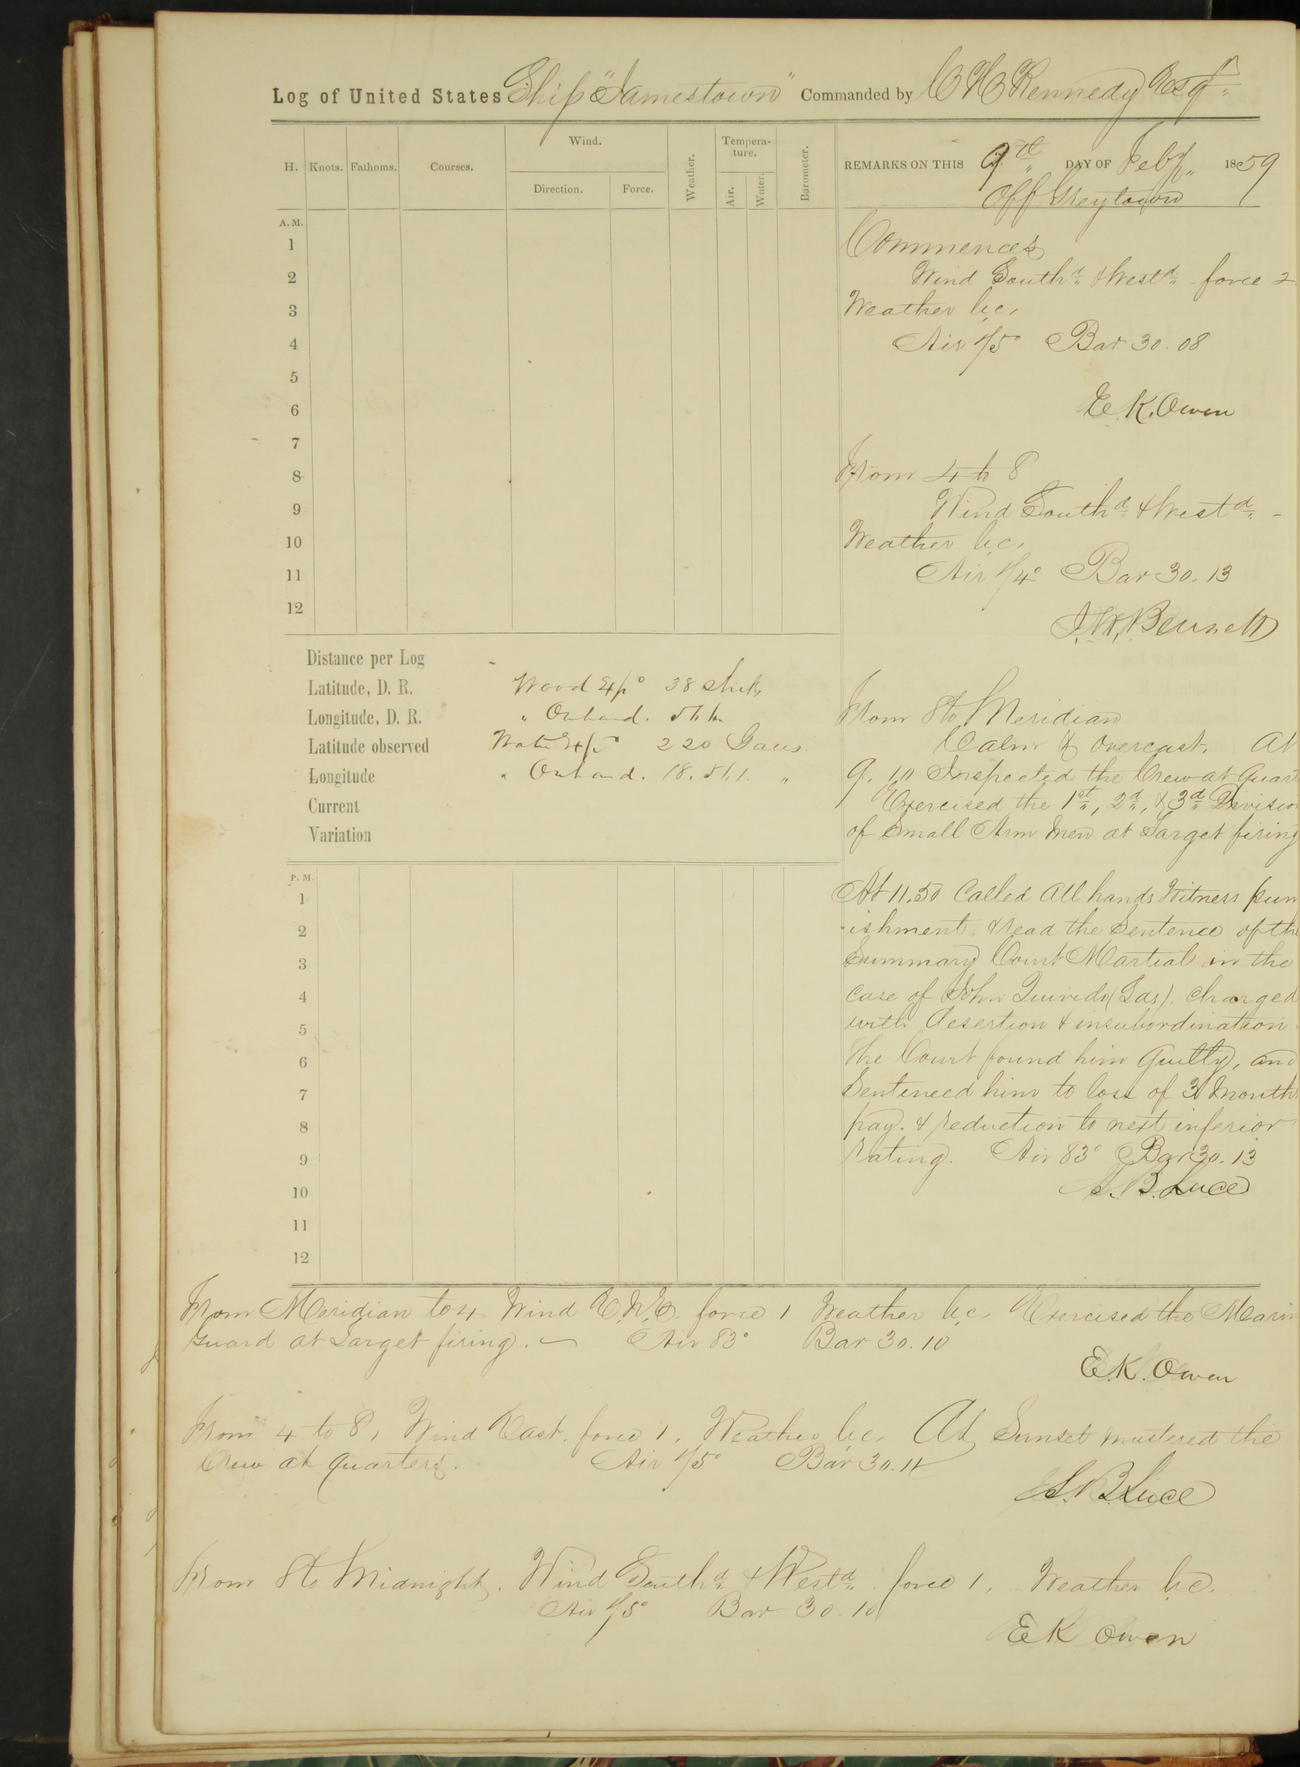 Log of United States Ship "Jamestown" Commanded by C H Kennedy Esqr.
H. Knots. Fathoms. Courses. Wind. Direction. Force. Weather. Tempera-ture. Air. Water. Barometer.
REMARKS ON THIS 9th DAY OF Feby. 1859
Off Greytown
A. M.
1
2
3
4
5
6
7
8
9
10
11
12
Commences
Wind Southd & Westd force 2
Weather b.c.
Air Bar 30.08
E. K. Owen
From 4 to 8
Wind Southd & Westd -
Weather b.c.
Air Bar 30.13
J. W. Bennett
Distance per Log
Latitude, D. R. Wood 38 sticks
Longitude, D. R. " On hand.
Latitude observed Water 220 Galls
Longitude " On hand. "
Current
Variation
From 8 to Meridian
Calm & overcast. At
9.10 Inspected the Crew at Quart
Exercised the 1st, 2d, & 3d Division
of Small Arm Men at Target firing
At 11.50 Called All hands Witness pun
-ishment. & read the Sentence of the
Summary Court Martial in the
case of John charged
with desertion & insubordination.
The Court found him Guilty, and
Sentenced him to loss of 3 Months
pay. & reduction to next inferior
rating. Air 83° Bar 30.13
S. B. Luce
P. M.
1
2
3
4
5
6
7
8
9
10
11
12
From Meridian to 4 Wind E.N.E. force 1 Weather b.c. Exercised the Marin
Guard at Target firing. — Air 83° Bar 30.10
E. K. Owen
From 4 to 8, Wind East. force 1. Weather b.c. At Sunset mustered the
Crew at quarters. Air Bar
S. B. Luce
From 8 to Midnight. Wind Southd & Westd force 1. Weather b.c.
Air Bar 30.10
E K Owen